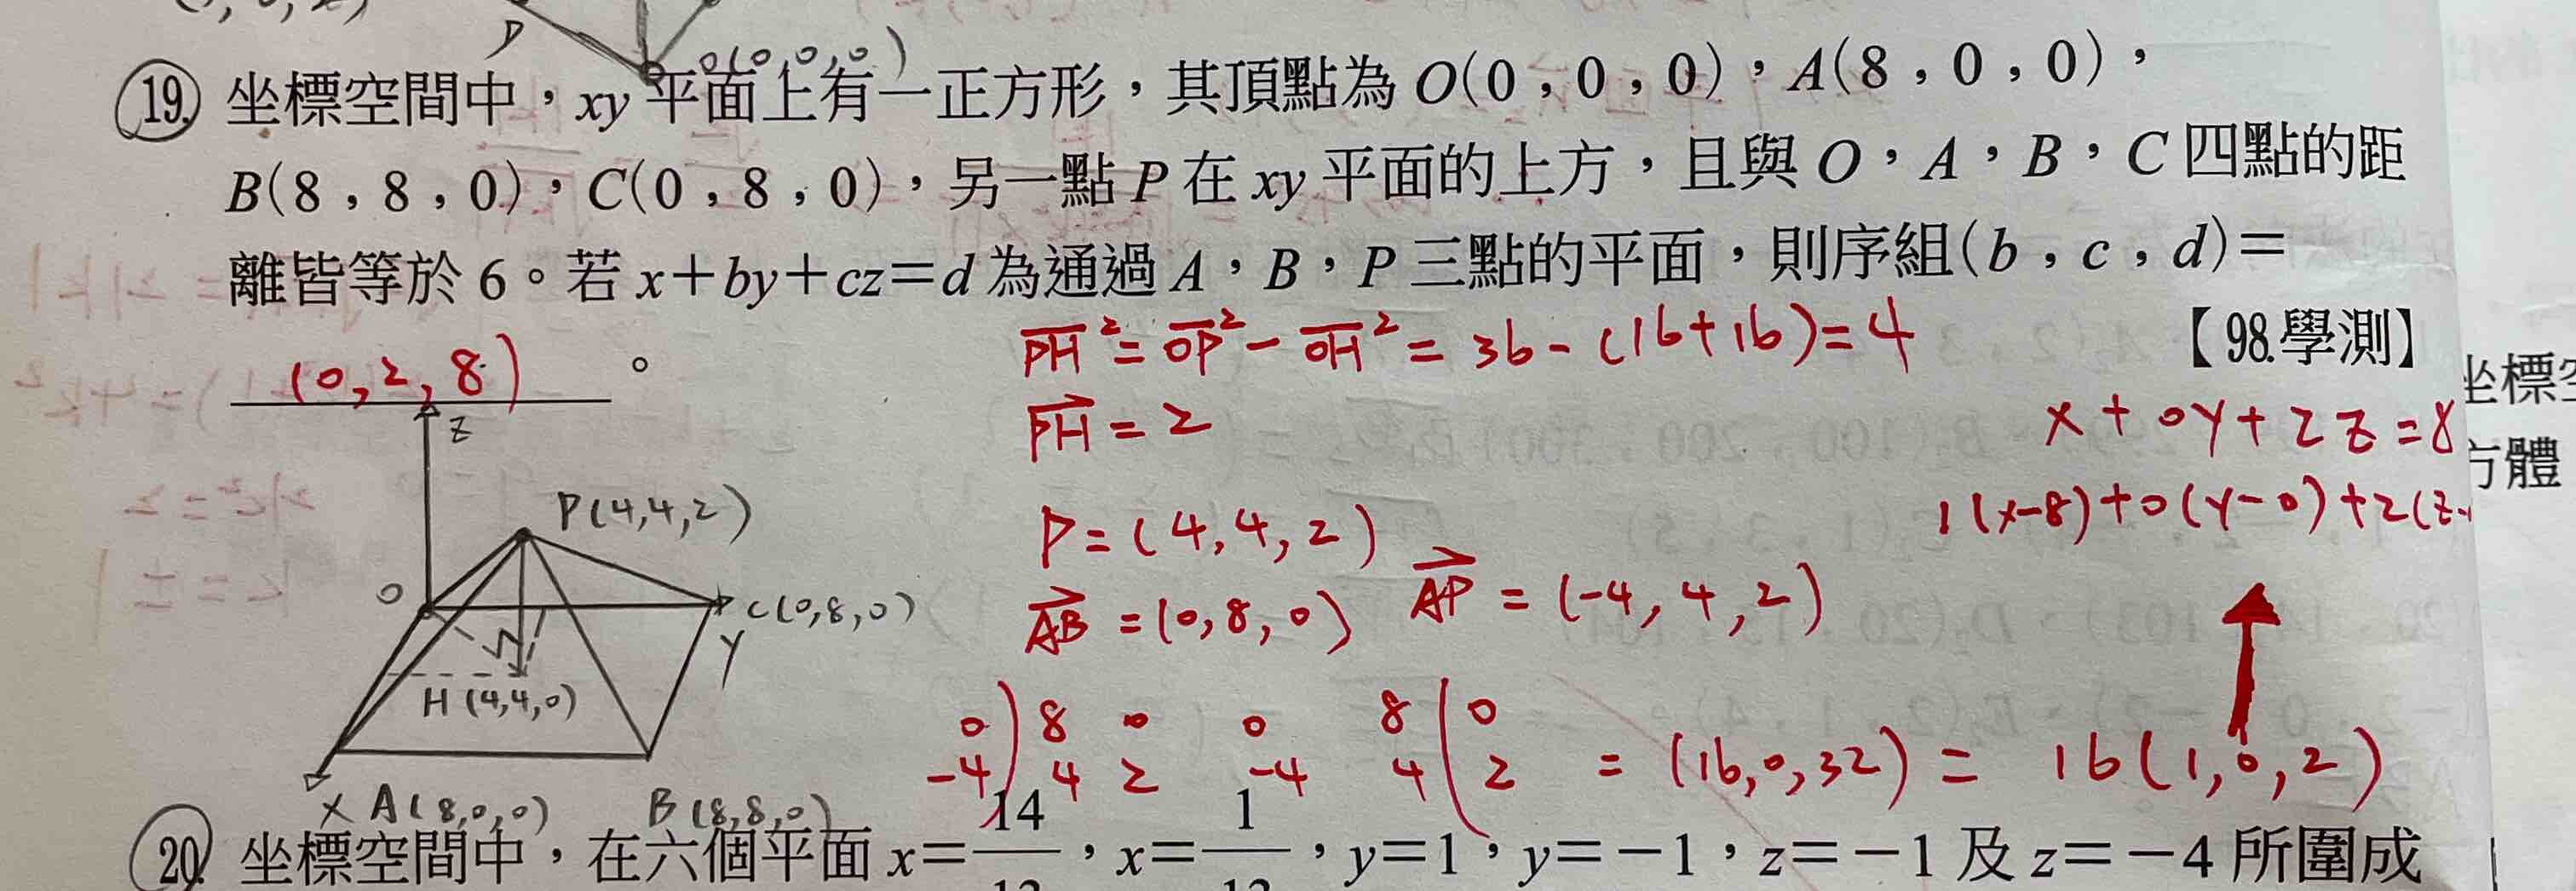 P
O(0,0,0)
19. 坐標空間中，xy 平面上有一正方形，其頂點為 O(0，0，0)，A(8，0，0)，
B(8，8，0)，C(0，8，0)，另一點 P 在 xy 平面的上方，且與 O，A，B，C 四點的距
離皆等於 6。若 x＋by＋cz＝d 為通過 A，B，P 三點的平面，則序組(b，c，d)＝
(0,2,8)。
【98.學測】
PH² = OP² - OH² = 36 - (16+16) = 4
PH = 2
P = (4,4,2)
AB = (0,8,0) AP = (-4,4,2)
0 ) 8 0 0 8 ( 0
-4 ) 4 2 -4 4 ( 2 = (16,0,32) = 16(1,0,2)
x + 0y + 2z = 8
1(x-8)+0(y-0)+2(z-
z
P(4,4,2)
O
C(0,8,0)
y
H(4,4,0)
x A(8,0,0)
B(8,8,0)
坐標空
方體
20. 坐標空間中，在六個平面 x＝14/，x＝1/，y＝1，y＝－1，z＝－1 及 z＝－4 所圍成